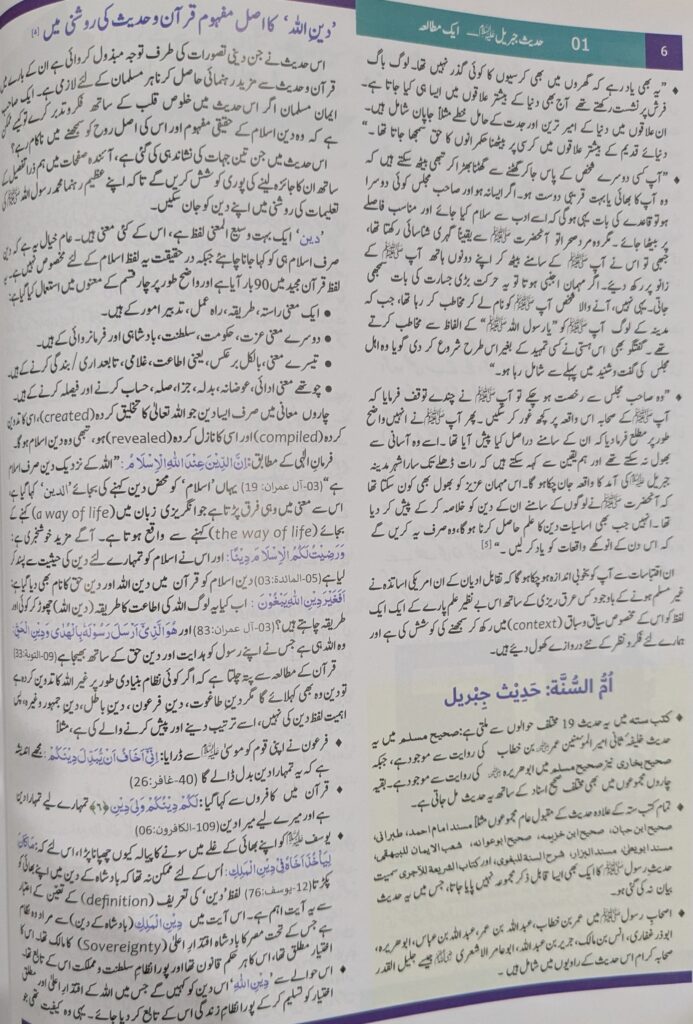 6
01
حدیث جبریل علیہ السلام — ایک مطالعہ
"یہ بھی یاد رہے کہ گھروں میں بھی کرسیوں کا کوئی گذر نہیں تھا۔ لوگ باگ
فرش پر نشست رکھتے تھے آج بھی دنیا کے بیشتر علاقوں میں ایسا ہی کیا جاتا ہے۔
ان علاقوں میں دنیا کے امیر ترین اور جدت کے حامل خطے مثلاً جاپان شامل ہیں۔
دنیائے قدیم کے بیشتر علاقوں میں کرسی پر بیٹھنا حکمرانوں کا حق سمجھا جاتا تھا۔"
"آپ کسی دوسرے شخص کے پاس جا کر گھٹنے سے گھٹنا بھڑا کر تبھی بیٹھ سکتے ہیں کہ
وہ آپ کا بھائی یا بہت قریبی دوست ہو۔ اگر ایسا نہ ہو اور صاحب مجلس کوئی دوسرا
ہو تو قاعدے کی بات یہی ہو گی کہ اسے ادب سے سلام کیا جائے اور مناسب فاصلے
پر بیٹھا جائے۔ مگر وہ مرد حر تو آنحضرت ﷺ سے یقیناً گہری شناسائی رکھتا تھا،
تبھی تو اس نے آپ ﷺ کے سامنے بیٹھ کر اپنے دونوں ہاتھ آپ ﷺ کے
زانو پر رکھ دیئے۔ اگر مہمان اجنبی ہوتا تو یہ حرکت بڑی جسارت کی بات سمجھی
جاتی۔ یہی نہیں، آنے والا شخص آپ ﷺ کو نام لے کر مخاطب کر رہا تھا، جب کہ
مدینہ کے لوگ آپ ﷺ کو "یا رسول اللہ ﷺ" کے الفاظ سے مخاطب کرتے
تھے۔ گفتگو بھی اس ہستی نے کسی تمہید کے بغیر اس طرح شروع کر دی گویا وہ اہل
مجلس کی گفت و شنید میں پہلے سے شامل رہا ہو۔"
"وہ صاحب مجلس سے رخصت ہو چکے تو آپ ﷺ نے چندے توقف فرمایا کہ
آپ ﷺ کے صحابہ اس واقعہ پر کچھ غور کر سکیں۔ پھر آپ ﷺ نے انہیں واضح
طور پر مطلع فرما دیا کہ ان کے سامنے دراصل کیا پیش آیا تھا۔ اسے وہ آسانی سے
بھول نہ سکتے تھے اور ہم یقین سے کہہ سکتے ہیں کہ رات ڈھلے تک سارا شہر مدینہ
جبریل علیہ السلام کی آمد کا واقعہ جان چکا ہو گا۔ اس مہمان عزیز کو بھول بھی کون سکتا تھا
کہ آنحضرت ﷺ نے لوگوں کے سامنے ان کے دین کو خلاصہ کر کے پیش کر دیا
تھا۔ انہیں جب بھی اساسیات دین کا علم حاصل کرنا ہو گا، وہ صرف یہ کریں گے
کہ اس دن کے انوکھے واقعات کو یاد کر لیں۔" [5]
ان اقتباسات سے آپ کو بخوبی اندازہ ہو چکا ہو گا کہ تقابل ادیان کے ان امریکی اساتذہ نے
غیر مسلم ہونے کے باوجود کس عرق ریزی کے ساتھ اس بے نظیر علم پارے کے ایک ایک
لفظ کو اس کے مخصوص سیاق و سباق (context) میں رکھ کر سمجھنے کی کوشش کی ہے اور
ہمارے لئے فکر و نظر کے نئے دروازے کھول دیئے ہیں۔
اُمُّ السُّنَّة: حَدِيْث جِبْرِيل
کتب ستہ میں یہ حدیث 19 مختلف حوالوں سے ملتی ہے: صحیح مسلم میں یہ
حدیث خلیفہ ثانی امیر المومنین عمر بن خطاب کی روایت سے موجود ہے، جبکہ
صحیح بخاری نیز صحیح مسلم میں ابو ہریرہ کی روایت سے موجود ہے۔ بقیہ
چاروں مجموعوں میں بھی مختلف صحیح اسناد کے ساتھ یہ حدیث مل جاتی ہے۔
تمام کتب ستہ کے علاوہ حدیث کے مقبول عام مجموعوں مثلاً مسند امام احمد، طبرانی،
صحیح ابن حبان، صحیح ابن خزیمہ، صحیح ابو عوانہ، شعب الایمان للبیہقی،
مسند ابو یعلیٰ، مسند البزار، شرح السنة للبغوی، اور کتاب الشریعة للآجری سمیت
حدیث رسول ﷺ کا ایک بھی ایسا قابل ذکر مجموعہ نہیں پایا جاتا، جس میں یہ حدیث
بیان نہ کی گئی ہو۔
اصحاب رسول ﷺ میں عمر بن خطاب، عبد اللہ بن عمر، عبد اللہ بن عباس، ابو ہریرہ،
ابو ذر غفاری، انس بن مالک، جریر بن عبد اللہ، ابو عامر الاشعری جیسے جلیل القدر
صحابہ کرام اس حدیث کے راویوں میں شامل ہیں۔
'دین اللہ' کا اصل مفہوم قرآن و حدیث کی روشنی میں
اس حدیث نے جن دینی تصورات کی طرف توجہ مبذول کروائی ہے ان کے بارے میں
قرآن و حدیث سے مزید رہنمائی حاصل کرنا ہر مسلمان کے لئے لازمی ہے۔ ایک صاحب
ایمان مسلمان اگر اس حدیث میں خلوص قلب کے ساتھ فکر و تدبر کرے تو کیسے ممکن
ہے کہ وہ دین اسلام کے حقیقی مفہوم اور اس کی اصل روح کو سمجھنے میں ناکام رہے؟
اس حدیث میں جن تین جہات کی نشاندہی کی گئی ہے، آئندہ صفحات میں ہم ذرا تفصیل کے
ساتھ ان کا جائزہ لینے کی پوری کوشش کریں گے تاکہ اپنے عظیم رہنما محمد رسول اللہ ﷺ کی
تعلیمات کی روشنی میں اپنے دین کو جان سکیں۔
'دین' ایک بہت وسیع المعنی لفظ ہے، اس کے کئی معنی ہیں۔ عام خیال یہ ہے کہ دین
صرف اسلام ہی کو کہا جانا چاہئے جبکہ در حقیقت یہ لفظ اسلام کے لئے مخصوص نہیں ہے۔
لفظ قرآن مجید میں 90 بار آیا ہے اور واضح طور پر چار قسم کے معنوں میں استعمال کیا گیا ہے:
ایک معنی راستہ، طریقہ، راہ عمل، تدبیر امور کے ہیں۔
دوسرے معنی عزت، حکومت، سلطنت، بادشاہی اور فرمانروائی کے ہیں۔
تیسرے معنی، بالکل برعکس، یعنی اطاعت، غلامی، تابعداری / بندگی کرنے کے ہیں۔
چوتھے معنی ادائی، عوضانہ، بدلہ، جزا، صلہ، حساب کرنے اور فیصلہ کرنے کے ہیں۔
چاروں معانی میں صرف ایسا دین جو اللہ تعالیٰ کا تخلیق کردہ (created)، اسی کا تدوین
کردہ (compiled) اور اسی کا نازل کردہ (revealed) ہو، تبھی وہ دین اسلام ہو گا۔
فرمان الٰہی کے مطابق: اِنَّ الدِّيْنَ عِنْدَ اللّٰهِ الْاِسْلَامُ : "اللہ کے نزدیک دین صرف اسلام
ہے" (03-آل عمران: 19) یہاں 'اسلام' کو محض دین کہنے کی بجائے 'الدین' کہا گیا ہے،
اس سے معنی میں وہی فرق پڑتا ہے جو انگریزی زبان میں (a way of life) کہنے کے
بجائے (the way of life) کہنے سے واقع ہوتا ہے۔ آگے مزید خوشخبری ہے:
وَرَضِيْتُ لَكُمُ الْاِسْلَامَ دِيْنًا: اور اس نے اسلام کو تمہارے لئے دین کی حیثیت سے پسند کر
لیا ہے (05-المائدة: 03) دین اسلام کو قرآن میں دین اللہ اور دین حق کا نام بھی دیا گیا ہے:
اَفَغَيْرَ دِيْنِ اللّٰهِ يَبْغُوْنَ : اب کیا یہ لوگ اللہ کی اطاعت کا طریقہ (دین اللہ) چھوڑ کر کوئی اور
طریقہ چاہتے ہیں؟ (03-آل عمران: 83) اور هُوَ الَّذِيْٓ اَرْسَلَ رَسُوْلَهٗ بِالْهُدٰى وَدِيْنِ الْحَقِّ:
وہ اللہ ہی ہے جس نے اپنے رسول کو ہدایت اور دین حق کے ساتھ بھیجا ہے (09-التوبة: 33)
قرآن کے مطالعہ سے پتہ چلتا ہے کہ اگر کوئی نظام بنیادی طور پر غیر اللہ کا تدوین کردہ ہے
تو دین وہ بھی کہلائے گا مگر دین طاغوت، دین فرعون، دین باطل، دین جمہور وغیرہ،
اہمیت لفظ دین کی نہیں، اسے ترتیب دینے اور پیش کرنے والے کی ہے، مثلاً
فرعون نے اپنی قوم کو موسیٰ علیہ السلام سے ڈرایا: اِنِّيْٓ اَخَافُ اَنْ يُّبَدِّلَ دِيْنَكُمْ: مجھے اندیشہ
ہے کہ یہ تمہارا دین بدل ڈالے گا (40-غافر: 26)
قرآن میں کافروں سے کہا گیا: لَكُمْ دِيْنُكُمْ وَلِيَ دِيْنِ ﴿٦﴾ تمہارے لیے تمہارا دین
ہے اور میرے لیے میرا دین (109-الكافرون: 06)
یوسف علیہ السلام کو اپنے بھائی کے غلے میں سونے کا پیالہ کیوں چھپانا پڑا، اس لئے کہ: مَا كَانَ
لِيَاْخُذَ اَخَاهُ فِيْ دِيْنِ الْمَلِكِ: اُس کے لئے ممکن نہ تھا کہ بادشاہ کے دین میں اپنے بھائی کو
پکڑتا (12-یوسف: 76) لفظ 'دین' کی تعریف (definition) کے تعین کے اعتبار
سے یہ آیت اہم ہے۔ اس آیت میں دِيْنِ الْمَلِكِ (بادشاہ کے دین) سے مراد وہ نظام
ہے جس کے تحت مصر کا بادشاہ اقتدار اعلیٰ (Sovereignty) کا مالک تھا۔ اس کا
اختیار مطلق تھا، اس کا ہر حکم قانون تھا اور پورا نظام سلطنت و مملکت اس کے تابع تھا۔
اس حوالے سے 'دِيْنِ اللّٰهِ' اس دین کو کہیں گے جس میں اللہ کے اقتدار اعلیٰ اور مطلق
اختیار کو تسلیم کر کے پورا نظام زندگی اس کے تابع کر دیا جائے۔ یہی وہ کیفیت تھی جو